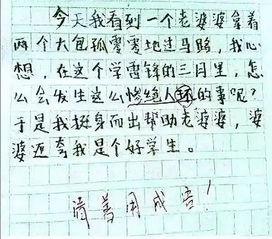 今天我看到一个老婆婆拿着
两个大包孤零零地过马路,我心
想,在这个学雷锋的三月里,怎
么会发生这么惨绝人环的事呢?
于是我挺身而出帮助老婆婆,婆
婆还夸我是个好学生。
请善用成语!